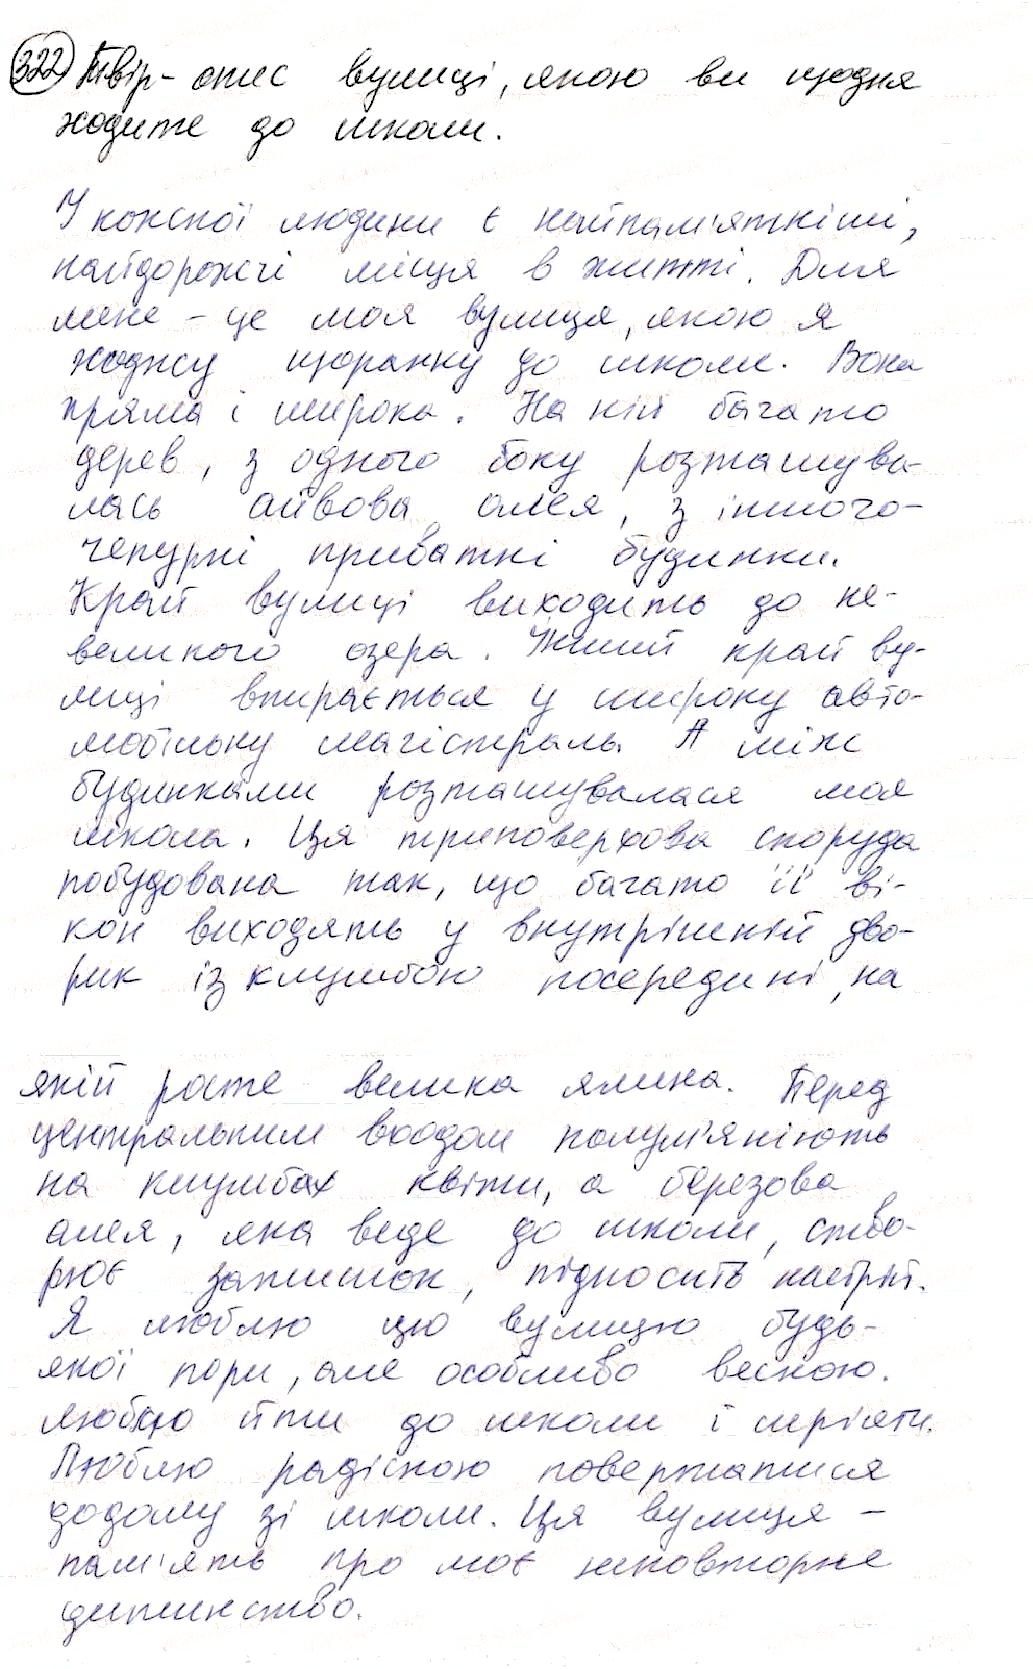 322 Твір-опис вулиці, якою ви щодня
ходите до школи.
У кожної людини є найпам'ятніші,
найдорожчі місця в житті. Для
мене - це моя вулиця, якою я
ходжу щоранку до школи. Вона
пряма і широка. На ній багато
дерев, з одного боку розташува-
лась айвова алея, з іншого-
чепурні приватні будинки.
Край вулиці виходить до не-
великого озера. Інший край ву-
лиці впирається у широку авто-
мобільну магістраль. А між
будинками розташувалася моя
школа. Ця триповерхова споруда
побудована так, що багато її ві-
кон виходять у внутрішній дво-
рик із клумбою посередині, на
якій росте велика ялина. Перед
центральним входом полум'яніють
на клумбах квіти, а березова
алея, яка веде до школи, ство-
рює затишок, підносить настрій.
Я люблю цю вулицю будь-
якої пори, але особливо весною.
Люблю йти до школи і мріяти.
Люблю радісною повертатися
додому зі школи. Ця вулиця -
пам'ять про моє неповторне
дитинство.